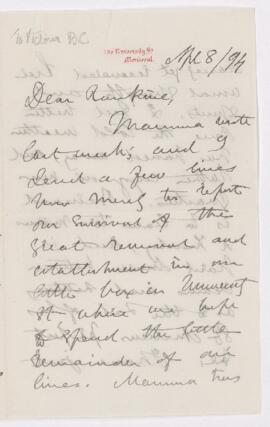 To Victoria B.C
Apl 8/94
Montreal.
Dear Rankine,
Mamma wrote
last week, and I
send a few lines
now merely to report
our survival of the
great removal and
establishment in our
little box in University
St where we hope
to spend the little
remainder of our
lives. Mamma has